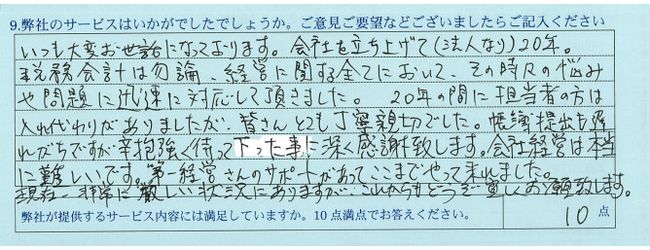 9.弊社のサービスはいかがでしたでしょうか。ご意見ご要望などございましたらご記入ください
いつも大変お世話になっております。会社を立ち上げて(法人なり)20年。
税務会計は勿論、経営に関する全てにおいて、その時々の悩み
や問題に迅速に対応して頂きました。20年の間に担当者の方は
入れ代わりがありましたが、皆さんとても丁寧親切でした。帳簿提出も遅
れがちですが辛抱強く待って下った事に深く感謝致します。会社経営は本当
に難しいです。第一経営さんのサポートがあってここまでやって来れました。
現在、非常に厳しい状況にありますが、これからもどうぞ宜しくお願致します。
弊社が提供するサービス内容には満足していますか。10点満点でお答えください。 10点